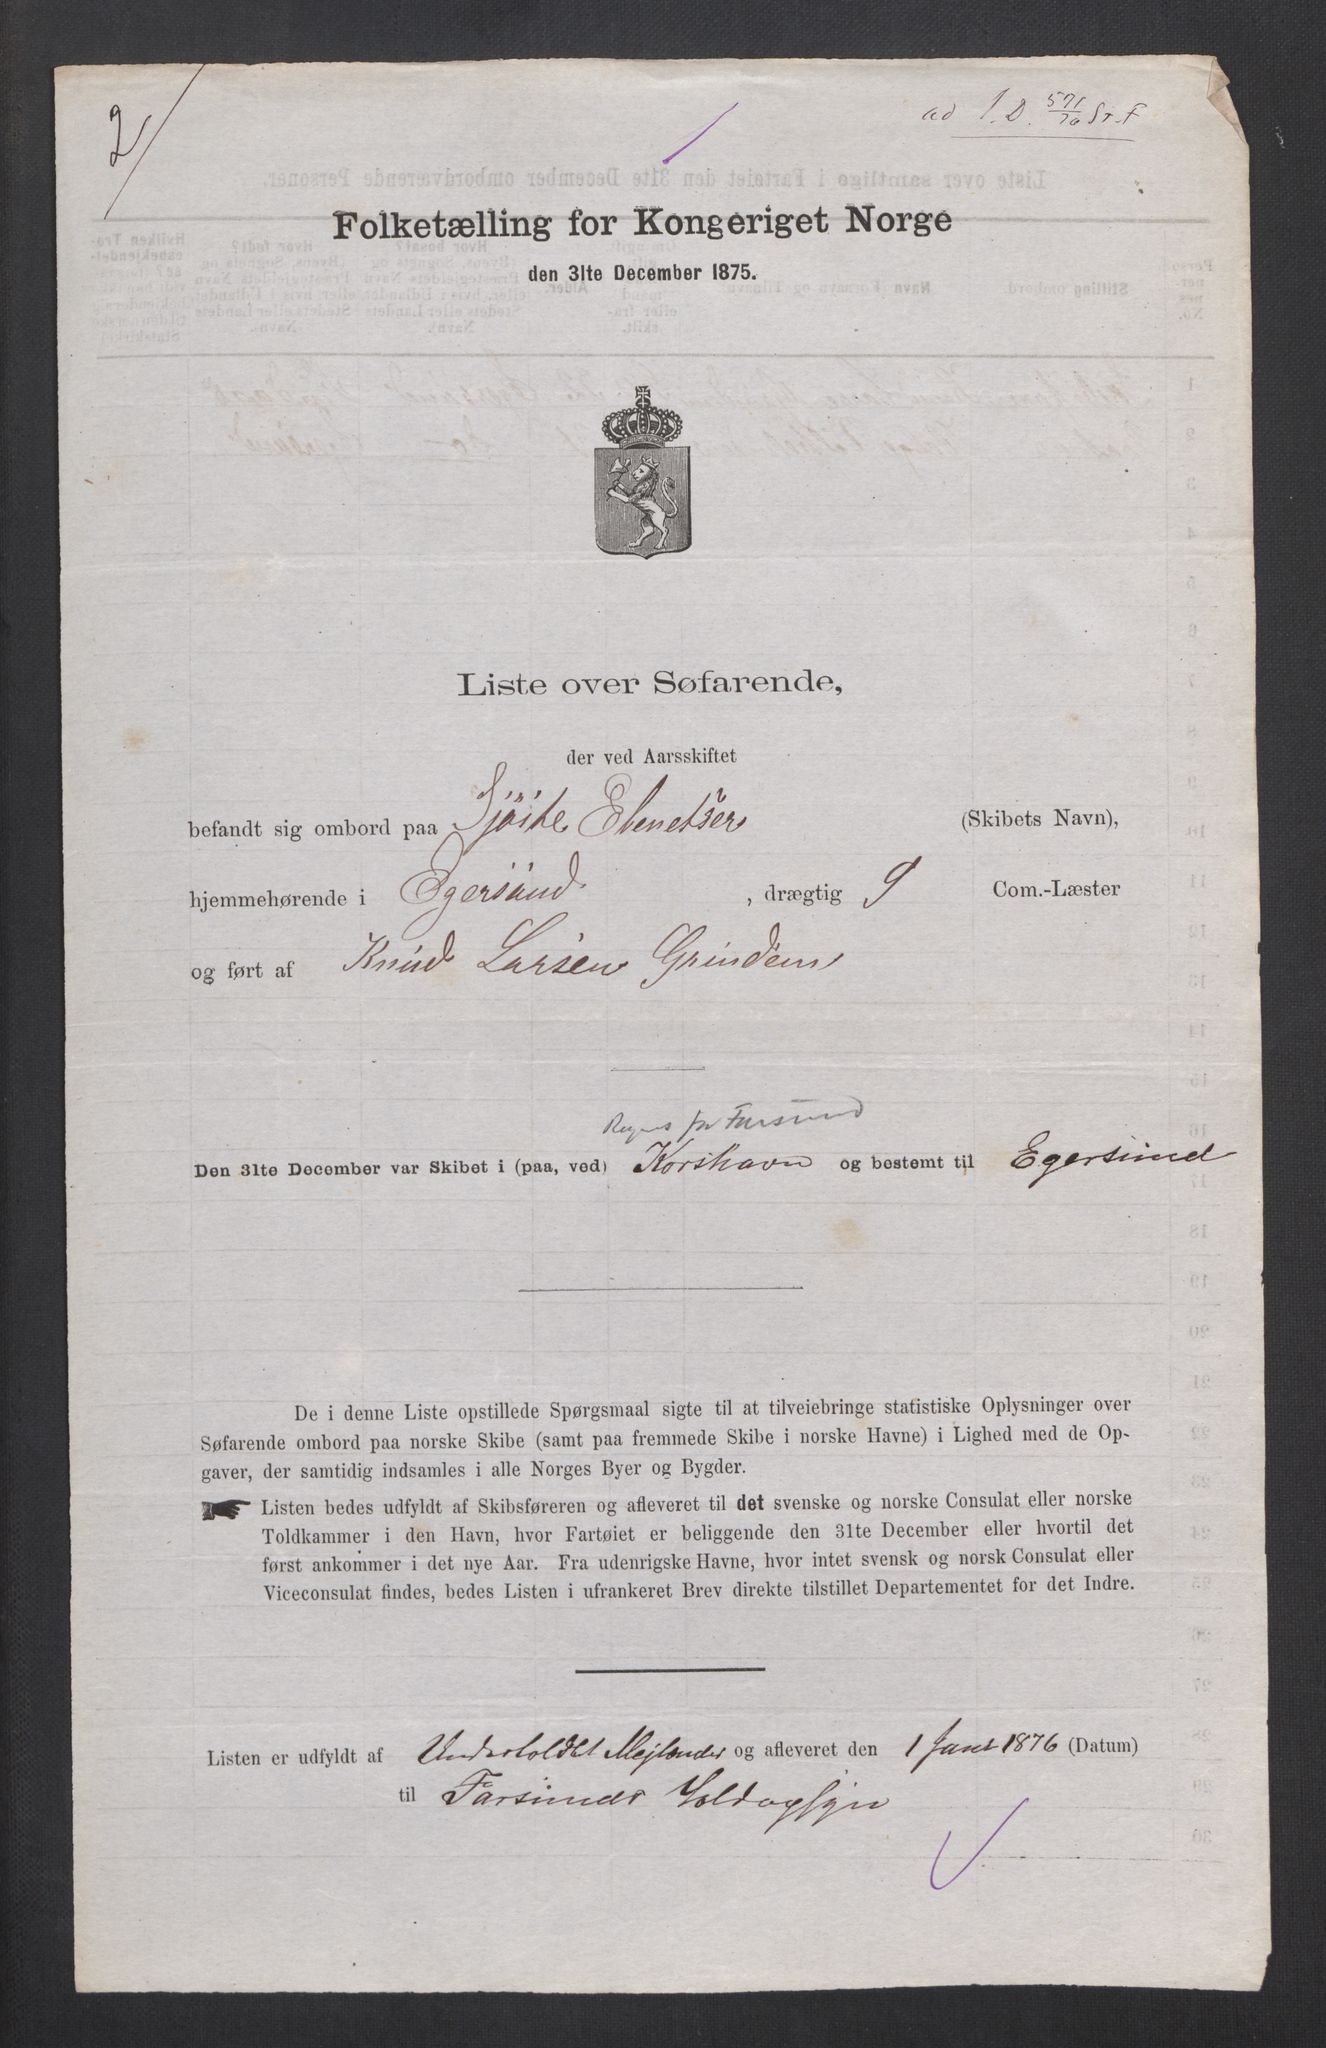 2
ad 1 D. 571/76 St. F
Folketælling for Kongeriget Norge
den 31te December 1875.
Liste over Søfarende,
der ved Aarsskiftet
befandt sig ombord paa Sjöite Ebenetser (Skibets Navn),
hjemmehørende i Egersund, drægtig 9 Com.-Læster
og ført af Knud Larsen Grindem
Regnes for Farsund
Den 31te December var Skibet i (paa, ved) Korshavn og bestemt til Egersund
De i denne Liste opstillede Spørgsmaal sigte til at tilveiebringe statistiske Oplysninger over
Søfarende ombord paa norske Skibe (samt paa fremmede Skibe i norske Havne) i Lighed med de Op-
gaver, der samtidig indsamles i alle Norges Byer og Bygder.
Listen bedes udfyldt af Skibsføreren og afleveret til det svenske og norske Consulat eller norske
Toldkammer i den Havn, hvor Fartøiet er beliggende den 31te December eller hvortil det
først ankommer i det nye Aar. Fra udenrigske Havne, hvor intet svensk og norsk Consulat eller
Viceconsulat findes, bedes Listen i ufrankeret Brev direkte tilstillet Departementet for det Indre.
Listen er udfyldt af Undertoldbt Mejlænder og afleveret den 1 Janr 1876 (Datum)
til Farsunds Toldopsyn